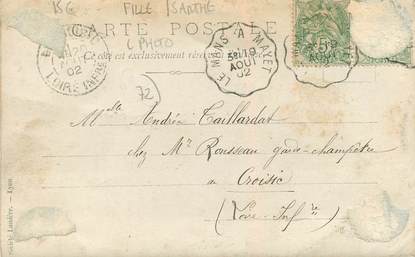 15€ FILLE / SARTHE
CARTE POSTALE
( PHOTO
Ce côté est exclusivement réservé
LE MANS A MAYET
AOUT
02
02
LOIRE INFRE
5
AOUT
72
Mlle Andrée Taillardat
chez Mr Rousseau garde-champêtre
au Croisic
(Loire-Infre)
Société Lumière. — Lyon.